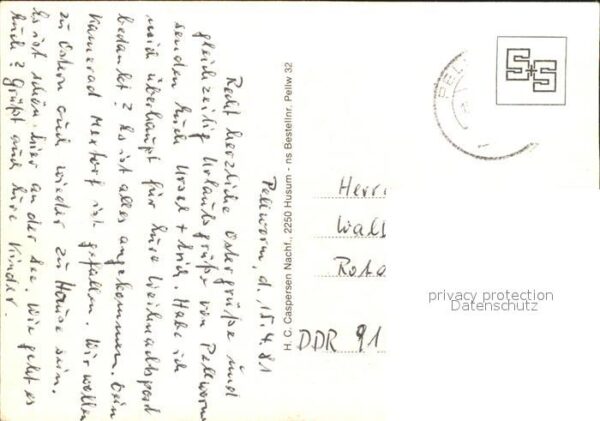 Pellworm, d. 15.4.81
Recht herzliche Ostergrüße und
gleichzeitig Urlaubsgrüße von Pellworm
senden Euch Ursel + Erich. Habe ich
mich überhaupt für Eure Weihnachtspost
bedankt? Es ist alles angekommen. Dein
Kamerad ist gefallen. Wir wollen
zu Ostern auch wieder zu Hause sein.
Es ist schön, hier an der See. Wie geht es
Euch? Grüßt auch Eure Kinder.
H. C. Caspersen Nachf., 2250 Husum - ns Bestellnr. Pellw 32
PEL
S+S
Herrn
Walt
Rota
DDR 91
privacy protection
Datenschutz